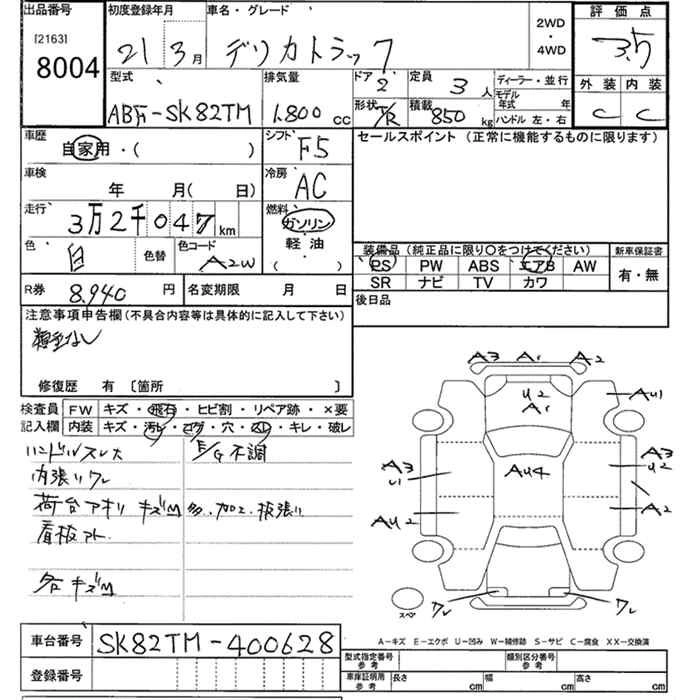 出品番号
[2163]
8004
初度登録年月
21 3月
車名・グレード
デリカトラック
2WD
・
4WD
評価点
3.5
外装 内装
C C
型式
ABF-SK82TM
排気量
1.800 cc
ドア 2
形状 T/R
定員 3人
積載 850 kg
ディーラー・並行
モデル年式 年
ハンドル 左・右
車歴
自家用・( )
車検
年 月( 日)
走行
3万2千047 km
色 白
色替
色コード A2W
シフト F5
冷房 AC
燃料
ガソリン
軽油
( )
セールスポイント (正常に機能するものに限ります)
装備品 (純正品に限り○をつけてください)
PS PW ABS エアB AW
SR ナビ TV カワ
新車保証書
有・無
R券 8.940 円
名変期限 月 日
後日品
注意事項申告欄 (不具合内容等は具体的に記入して下さい)
修復歴 有 〔箇所 〕
検査員 FW キズ・飛石・ヒビ割・リペア跡・×要
記入欄 内装 キズ・汚レ・コゲ・穴・スレ・キレ・破レ
ハンドルスレ大
E/G不調
内張りワレ
荷台アオリ キズM 多. 加工. 板張り
看板アト
各キズM
A3 A1 A2
U2
A1
AU1
A3
U1
AU4
A3
U2
AU2
A2
ワレ ワレ
スペア
A-キズ E-エクボ U-凹み W-補修跡 S-サビ C-腐食 XX-交換済
車台番号 SK82TM-400628
登録番号
型式指定番号
参考
類別区分番号
参考
車庫証明
参考
長さ cm
幅 cm
高さ cm